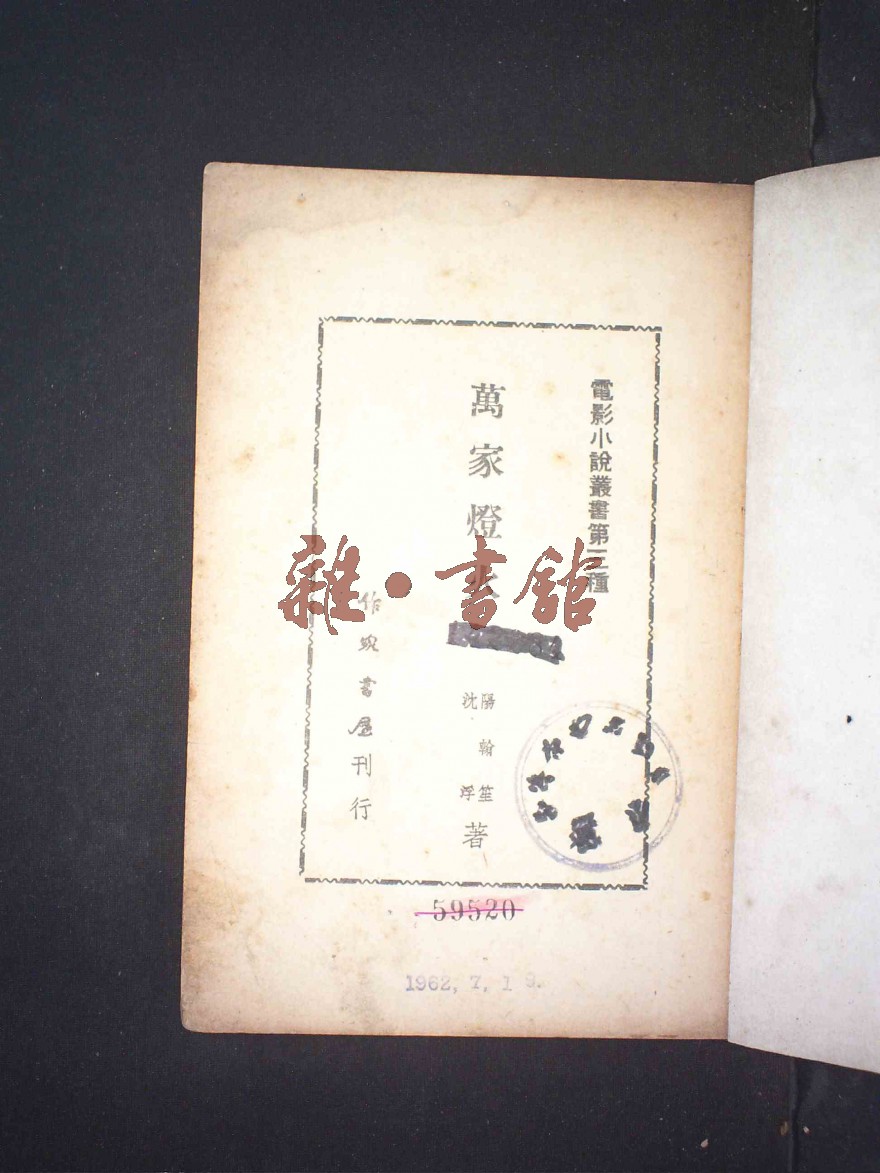 電影小說叢書第三種
萬家燈火
陽翰笙
沈浮
著
作家書屋刊行
雜·書舘
59520
1962, 7, 19.